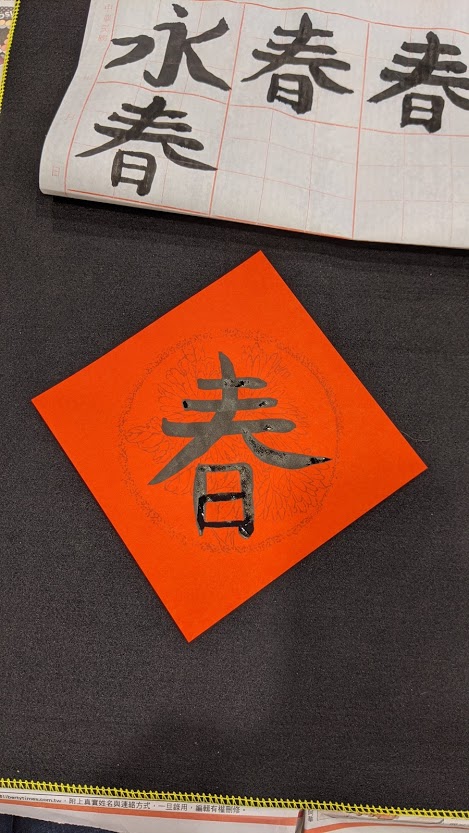 永 春 春
春
春
libertytimes.com.tw、附上真實姓名與連絡方式，一旦錄用，編輯有權刪修。